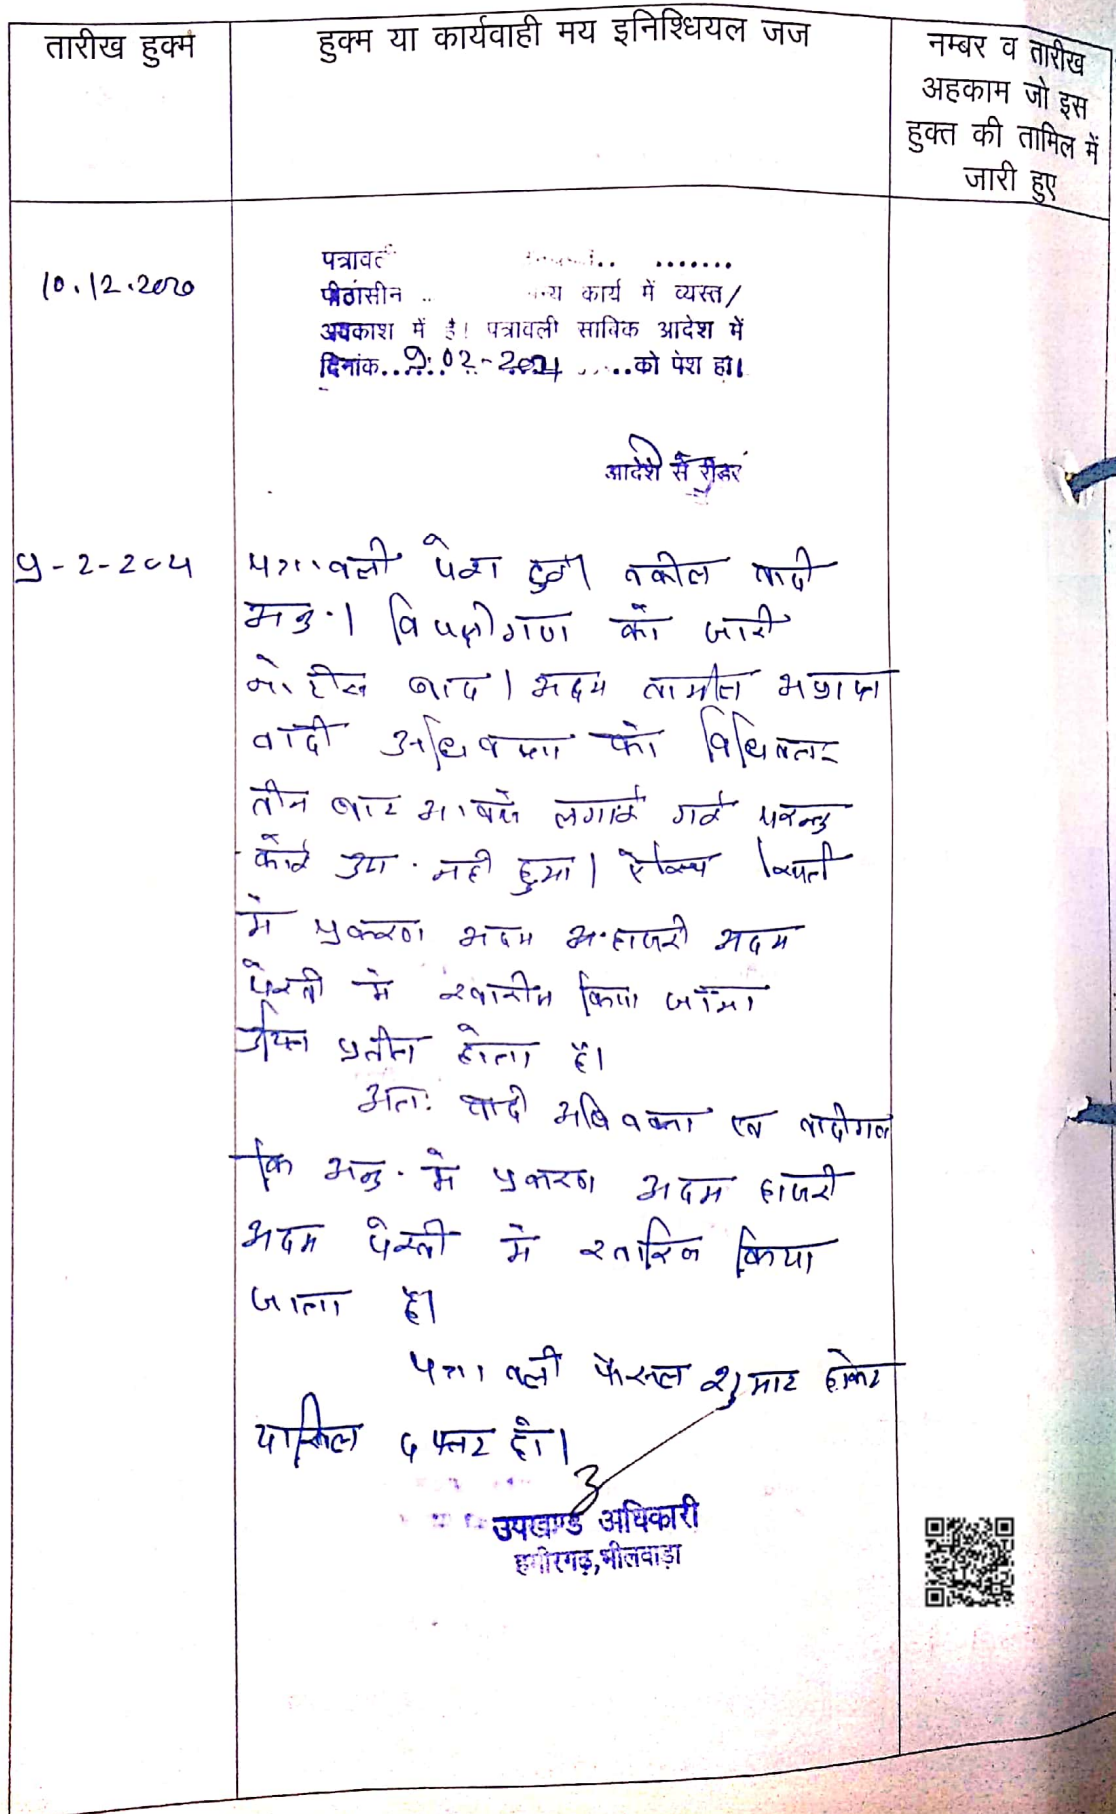 तारीख हुक्म
हुक्म या कार्यवाही मय इनिश्धियल जज
नम्बर व तारीख
अहकाम जो इस
हुक्त की तामिल में
जारी हुए
10.12.2020
पत्रावली
पीठासीन .. कार्य में व्यस्त/
अवकाश में है। पत्रावली साबिक आदेश में
दिनांक..9.02-2021.....को पेश हो।
आदेश से रीडर
9-2-2021
पत्रावली पेश हुई। वकील वादी
अनु.। विपक्षीगण को जारी
नोटीस बाद। अदम तामील
वादी अधिवक्ता को विधिवत
तीन बार आवाजे लगाई गई परन्तु
कोई उप. नही हुआ। स्थिती
मे प्रकरण अदम अ.हाजरी अदम
पेरवी मे खारीज किया जाना
उचित प्रतीत होता है।
अतः वादी अधिवक्ता एव वादीगण
कि अनु. मे प्रकरण अदम हाजरी
अदम पेरवी मे खारिज किया
जाता है।
पत्रावली फैसल शुमार होकर
दाखिल दफ्तर हो।
उपखण्ड अधिकारी
हमीरगढ़,भीलवाड़ा